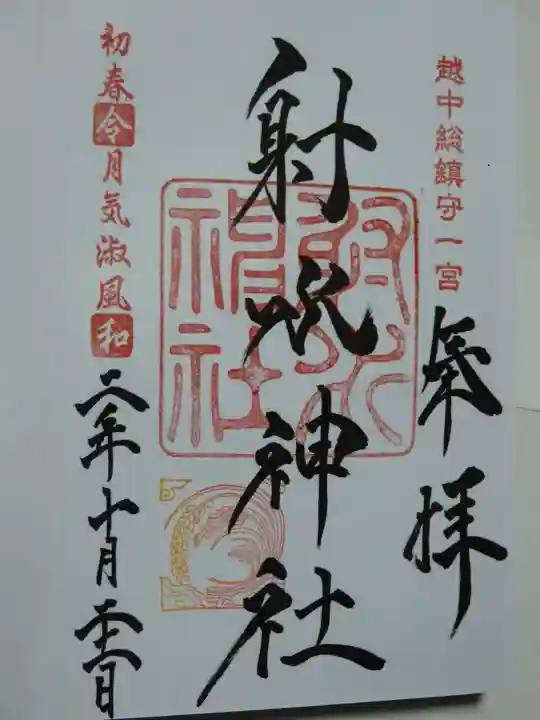 越中総鎮守一宮
奉拝
射水神社
射水神社
初春令月気淑風和
二年十月二十二日